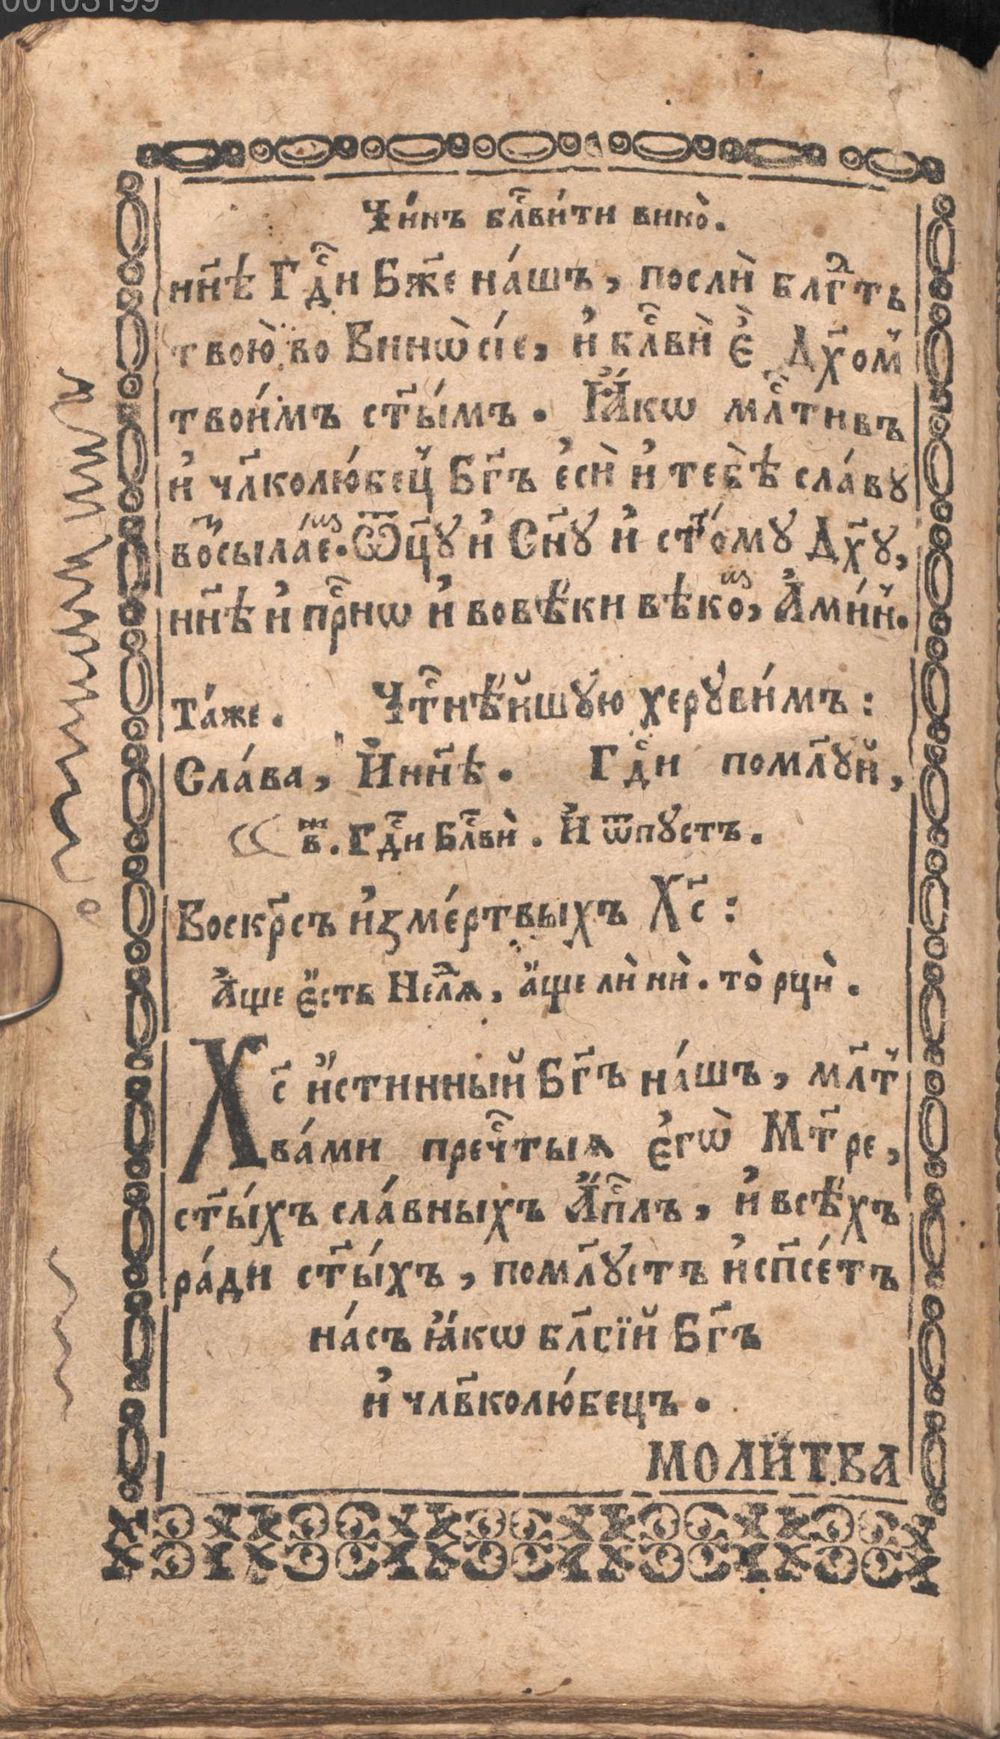 00103199
Чи́нъ бл҃ви́ти вино̀.
нн҃ѣ Гдⷭ҇и Бж҃е на́шъ, послѝ блгⷣть
твою̀ во Винѡ̀ сїе, и҆ бл҃вѝ є҆̀ Дх҃омъ
твои́мъ ст҃ы́мъ. Ꙗ҆́кѡ млⷭ҇тивъ
и҆ чл҃колю́бецъ Бг҃ъ є҆сѝ и҆ тебѣ̀ сла́ву
во́сылаеⷨ. Ѿц҃ꙋ и҆ Сн҃ꙋ и҆ ст҃о́мꙋ Дх҃ꙋ,
нн҃ѣ и҆ прⷭ҇нѡ и҆ вовѣ́ки вѣкоⷨ, А҆ми́нь.
Та́же. Чтⷭ҇нѣ́йшꙋю херꙋви́мъ:
Сла́ва, И҆ нн҃ѣ. Гдⷭ҇и поми҃лꙋй,
в҃. Гдⷭ҇и Бл҃вѝ. И҆ ѿпꙋстъ.
Воскр҃съ и҆зме́ртвыхъ Хс҃:
А҆́ще є҆́сть Неⷣлѧ, а҆́ще лѝ нѝ. то̀ рцѝ.
Хс҃ и҆́стинный Бг҃ъ на́шъ, мл҃т
ва́ми пречⷭ҇тыѧ є҆гѡ̀ Мт҃ре,
ст҃ы́хъ сла́вныхъ А҆пⷭ҇лъ, и҆ всѣ́хъ
ра́ди ст҃ы́хъ, помл҃ꙋетъ и҆ сп҃се́тъ
на́съ ꙗ҆́кѡ бл҃гїй Бг҃ъ
и҆ члв҃колю́бецъ.
МОЛИ́ТВА